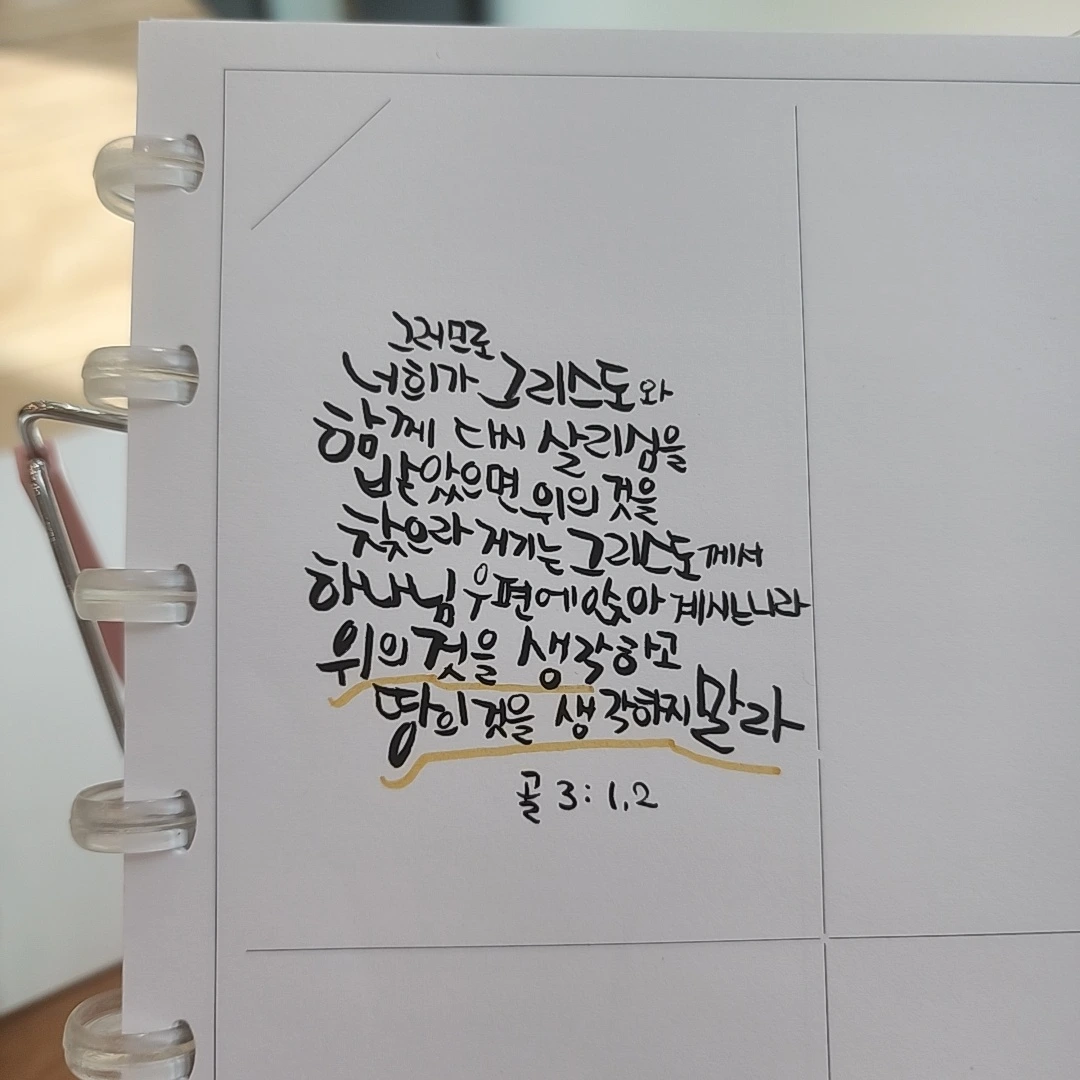 그러므로
너희가 그리스도와
함께 다시 살리심을
받았으면 위의 것을
찾으라 거기는 그리스도께서
하나님 우편에 앉아 계시느니라
위의 것을 생각하고
땅의 것을 생각하지 말라
골 3:1,2